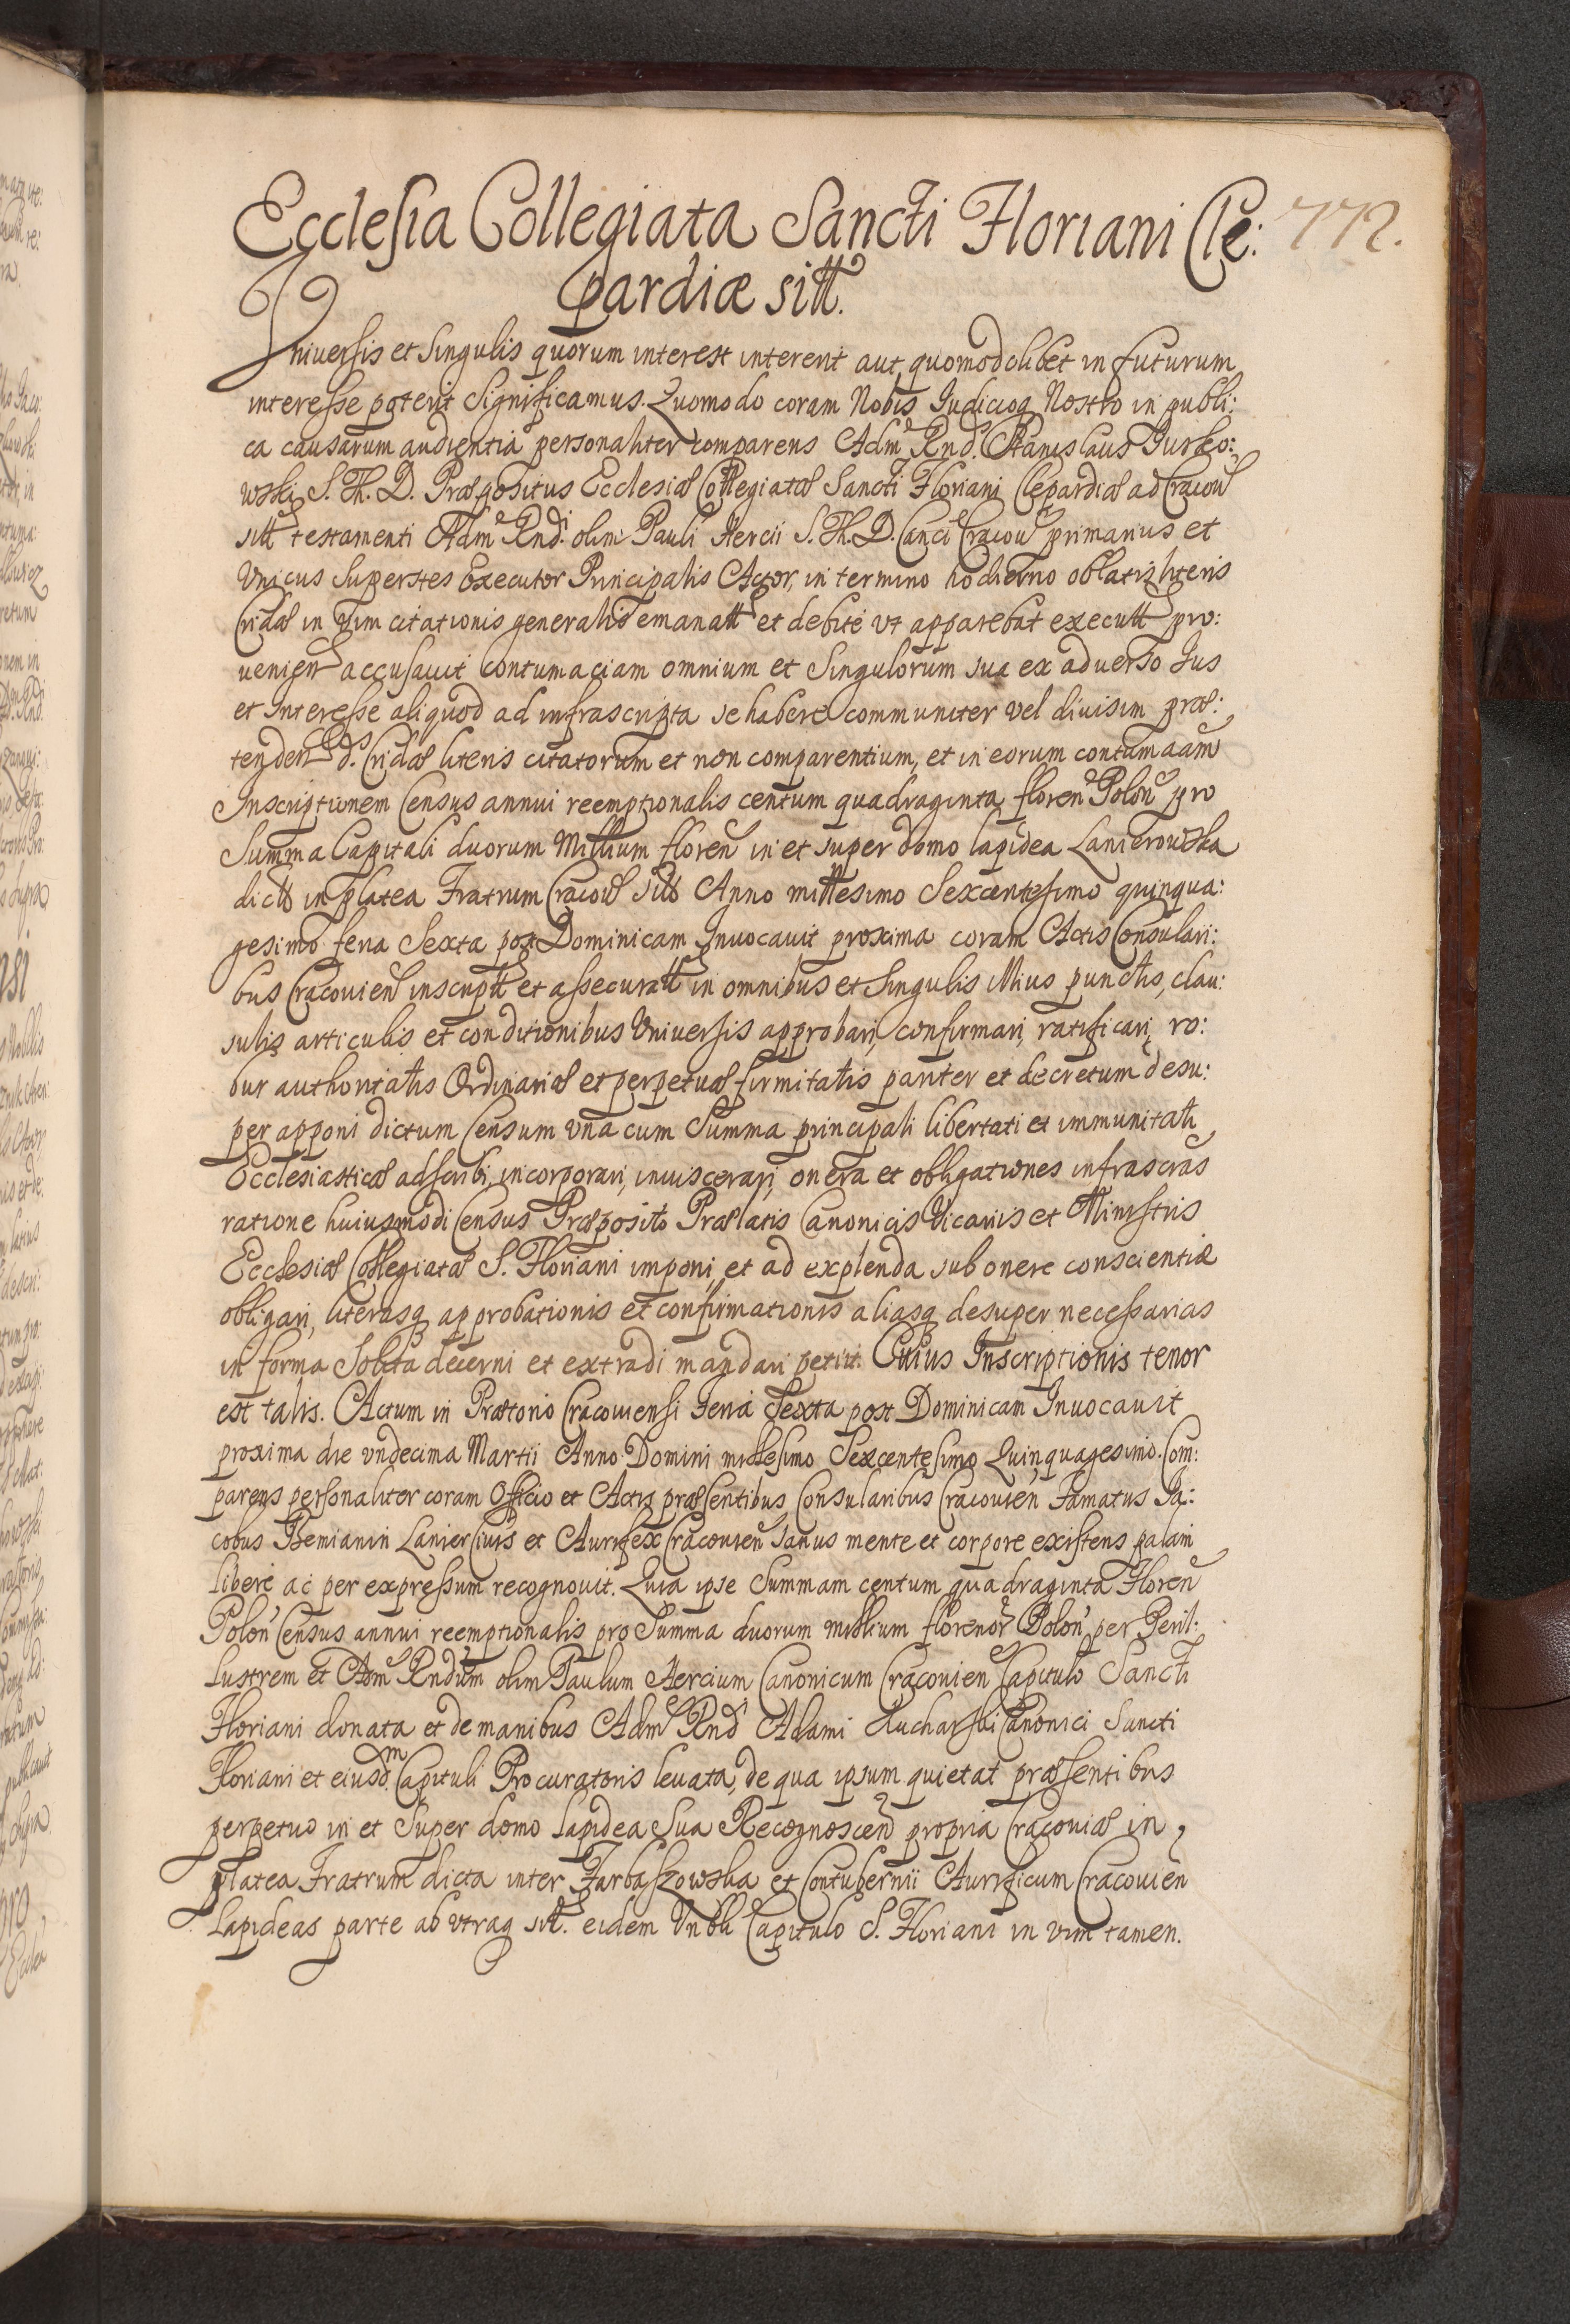 Ecclesia Collegiata Sancti Floriani Cle: 772.
pardiæ sitt.
Vniversis et Singulis quorum interest intererit aut quomodolibet in futurum
interesse poterit Significamus. Quomodo coram Nobis Iudicioq Nostro in publi:
ca causarum audientia personaliter comparens Adm Rnd. Stanislaus Iurko:
wski S. Th. D. Præpositus Ecclesiæ Collegiatæ Sancti Floriani Clepardiæ ad Cracou
sitt testamenti Adm Rndi olim Pauli Hercii S. Th. D. Canci Cracou primarius et
Vnicus Superstes Executor Principalis Actor, in termino hodierno oblatis literis
Cridæ in Vim citationis generalis emanatt et debite vt apparebat executt pro:
uenien accusauit contumaciam omnium et Singulorum sua ex aduerso Ius
et Interesse aliquod ad infrascripta se habere communiter vel diuisim præ:
tenden d. Cridæ literis citatorum et non comparentium, et in eorum contumaciam
Inscriptionem Census annui reemptionalis centum quadraginta floren Polon pro
Summa Capitali duorum Millium floren in et super domo lapidea Lanierowska
dicta in platea Fratrum Cracou sitt Anno millesimo Sexcentesimo quinqua:
gesimo feria Sexta post Dominicam Inuocauit proxima coram Actis Consulari:
bus Cracouien inscriptt et assecuratt in omnibus et Singulis illius punctis, clau:
sulis articulis et conditionibus Vniuersis approbari, confirmari, ratificari, ro:
bur authoritatis Ordinariæ et perpetuæ firmitatis pariter et decretum desu:
per apponi dictum Censum vna cum Summa principali libertati et immunitati
Ecclesiasticæ adscribi, incorporari, inuiscerari, onera et obligationes infrascras
ratione huiusmodi Census Præposito Prælatis Canonicis Vicariis et Ministris
Ecclesiæ Collegiatæ S. Floriani imponi, et ad explenda sub onere conscientiæ
obligari, literasq approbationis et confirmationis aliasq desuper necessarias
in forma Solita decerni et extradi mandari petiit. Cuius Inscriptionis tenor
est talis. Actum in Prætorio Cracouiensi Feria Sexta post Dominicam Inuocauit
proxima die vndecima Martii Anno Domini millesimo Sexcentesimo Quinquagesimo. Com:
parens personaliter coram Officio et Actis præsentibus Consularibus Cracouien Famatus Ia:
cobus Bemianin Lanier Ciuis et Aurifex Cracouien sanus mente et corpore existens palam
libere ac per expressum recognouit. Quia ipse Summam centum quadraginta Floren
Polon Census annui reemptionalis pro Summa duorum millium florenor Polon per Peril:
lustrem et Adm Rndum olim Paulum Hercium Canonicum Cracouien Capitulo Sancti
Floriani donata et de manibus Adm Rnd Adami Kucharski Canonici Sancti
Floriani et eiusdm Capituli Procuratoris leuata, de qua ipsum quietat præsentibus
perpetuo in et Super domo lapidea Sua Recognoscen propria Cracouiæ in
platea Fratrum dicta inter Farbaszowska et Contubernii Aurificum Cracouien
Lapideas parte ab vtraq sitt. eidem Vnbli Capitulo S. Floriani in vim tamen.